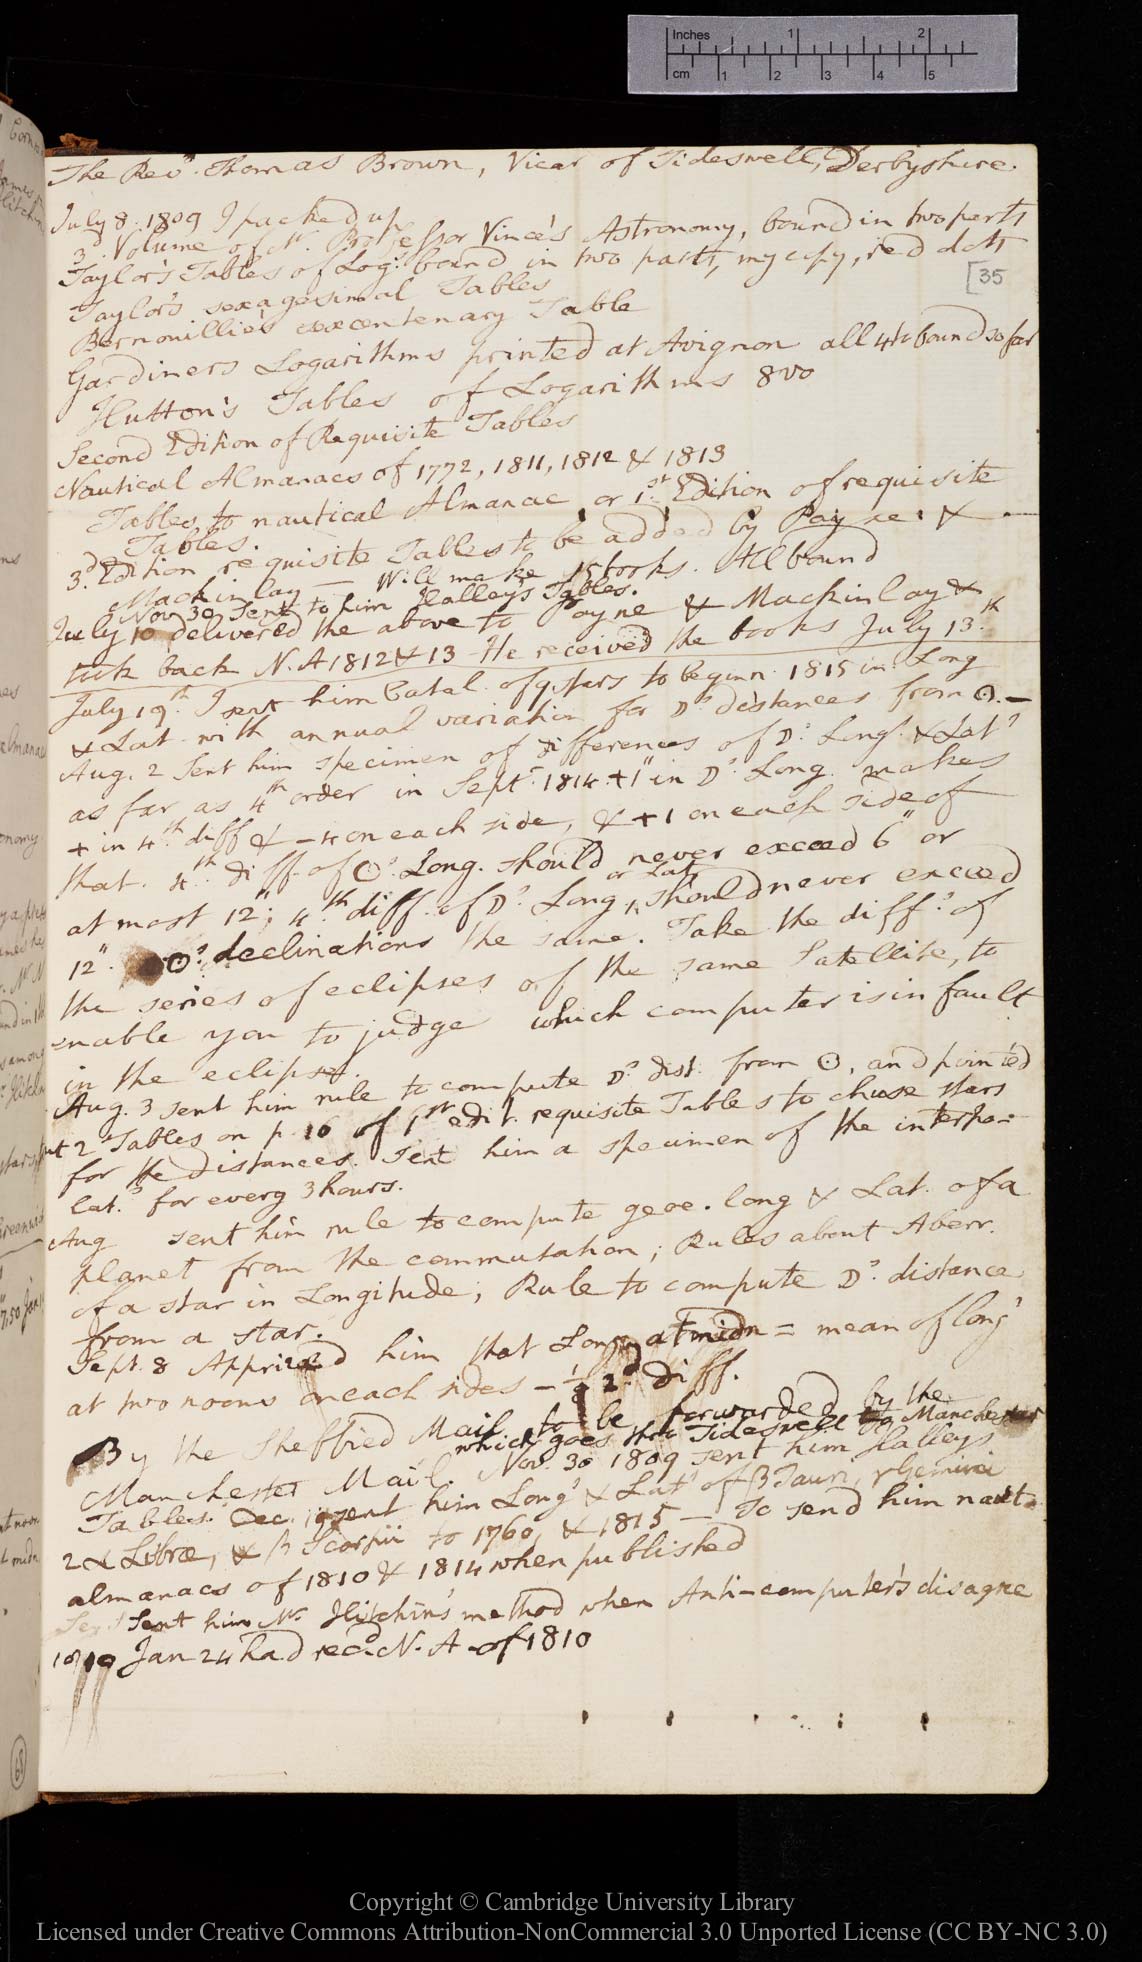 Inches 1 2
cm 1 2 3 4 5
The Revd. Thomas Brown, Vicar of Tideswell, Derbyshire.
July 8. 1809 I packed up
3d. Volume of Mr. Professor Vince's Astronomy, bound in two parts
Taylor's Tables of Log: bound in two parts, my copy, red dots
[35
Taylor's sexagesimal Tables
Bernouillie's sexcentenary Table
Gardiners Logarithms printed at Avignon all 4to bound so far
Hutton's Tables of Logarithms 8vo
Second Edition of Requisite Tables
Nautical Almanacs of 1772, 1811, 1812 & 1813
Tables to nautical Almanac or 1st. Edition of requisite
Tables.
3d. Edition requisite Tables to be added by Payne & —
Mackinlay — Will make 15 books. All bound
Nov 30 sent to him Halley's Tables.
July 10 delivered the above to Payne & Mackinlay &
took back N. A 1812 & 13 - He received the books July 13.th
July 19th. I sent him Catal. of 9 stars to beginn. 1815 in Long
& Lat. with annual variation for ☽s distances from ☉. —
Aug. 2 Sent him specimen of differences of ☽s: Long. & Lats
as far as 4th order in Sept. 1814. +1" in ☽s. Long. makes
+ in 4th. diff & -4 on each side, & +1 on each side of
that. 4th. diff. of ☉s. Long. should never exceed 6" or
at most 12"; 4.th diff. of ☽s. Long or Lat, should never exceed
12". ☉s: declinations the same. Take the diffs: of
the series of eclipses of the same Satellite, to
enable you to judge which computer is in fault
in the eclipses.
Aug. 3 sent him rule to compute ☽s dist. from ☉, and pointed
out 2 Tables on p. 16 of 1st edit. requisite Tables to chuse stars
for the distances. Sent him a specimen of the interpo-
lat.s for every 3 hours.
Aug sent him rule to compute geoc. long & Lat. of a
planet from the commutation; Rules about Aberr.
of a star in Longitude; Rule to compute ☽s. distance
from a star.
Sept. 8 Apprized him that Long at midn = mean of longs
at two noons on each sides - 1/8 2d. diff.
By the Sheffied Mail to be forwarded by the
which goes thro' Tideswell to Manchester
Manchester Mail. Nov. 30 1809 sent him Halleys
Tables. Dec. 19 sent him Longs & Lats of β Tauri, γ Gemini
2 α Libræ, & β Scorpii to 1760, & 1815 — To send him naut.
almanacs of 1810 & 1814 when published
Sent him Mr Hitchin's method when Anti-computer's disagree
1810 Jan 24 had recd. N. A of 1810
68
Copyright © Cambridge University Library
Licensed under Creative Commons Attribution-NonCommercial 3.0 Unported License (CC BY-NC 3.0)